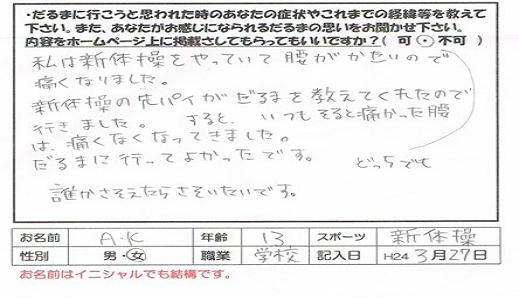 ・だるまに行こうと思われた時のあなたの症状やこれまでの経緯等を教えて
下さい。また、あなたがお感じになられるだるまの思いをお聞かせ下さい。
内容をホームページ上に掲載さしてもらってもいいですか?( 可 ・ 不可 )
私は新体操をやっていて腰がかたいので
痛くなりました。
新体操の先パイがだるまを教えてくれたので
行きました。 すると、いつもそると痛かった腰
は、痛くなくなってきました。
だるまに行ってよかったです。 どっちでも
誰かさそえたらさそいたいです。
お名前 A.K 年齢 13 スポーツ 新体操
性別 男・女 職業 学校 記入日 H24 3月27日
お名前はイニシャルでも結構です。